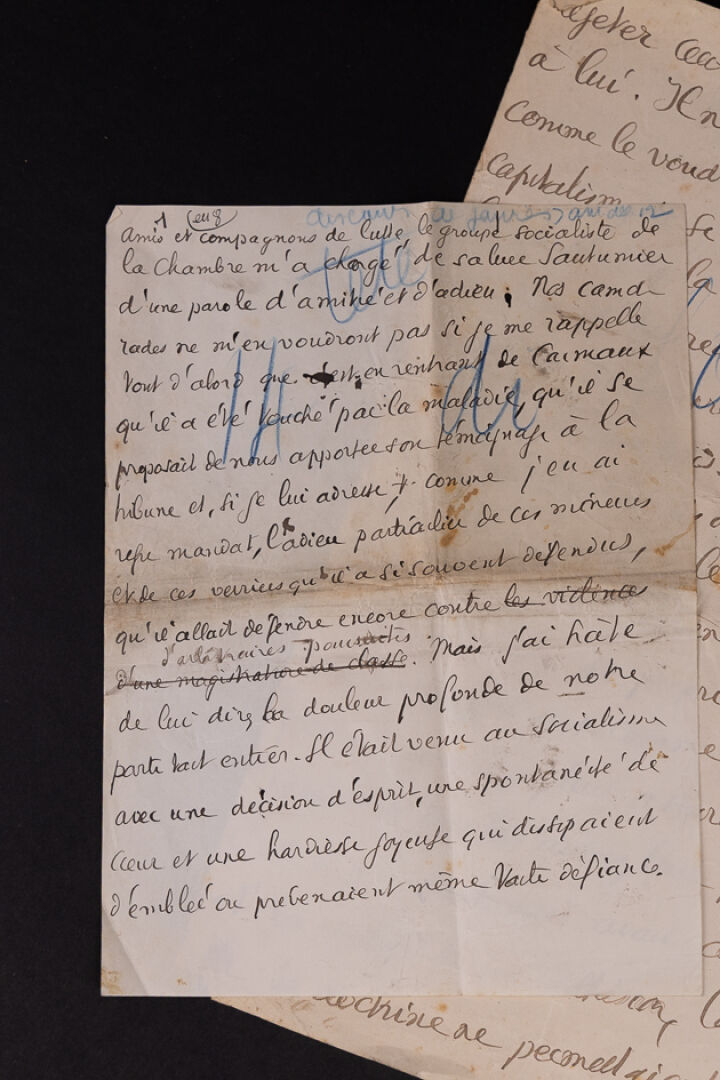 à lui. Il n
comme le voud
capitalism
1 en 8
discours de Jaurès
Amis et compagnons de lutte, le groupe socialiste de
la Chambre m'a chargé de saluer Sautumier
d'une parole d'amitié et d'adieu ; Nos cama-
rades ne m'en voudront pas si je me rappelle
tout d'abord que c'est en rentrant de Carmaux
qu'il a été touché par la maladie, qu'il se
proposait de nous apporter son témoignage à la
tribune et, si je lui adresse, comme j'en ai
reçu mandat, l'adieu particulier de ces mineurs
et de ces verriers qu'il a si souvent défendus,
qu'il allait défendre encore contre les violences
d'arbitraires poursuites
d'une magistrature de classe. Mais j'ai hâte
de lui dire la douleur profonde de notre
parti tout entier. Il était venu au socialisme
avec une décision d'esprit, une spontanéité de
cœur et une hardiesse joyeuse qui dissipaient
d'emblée ou prévenaient même toute défiance.